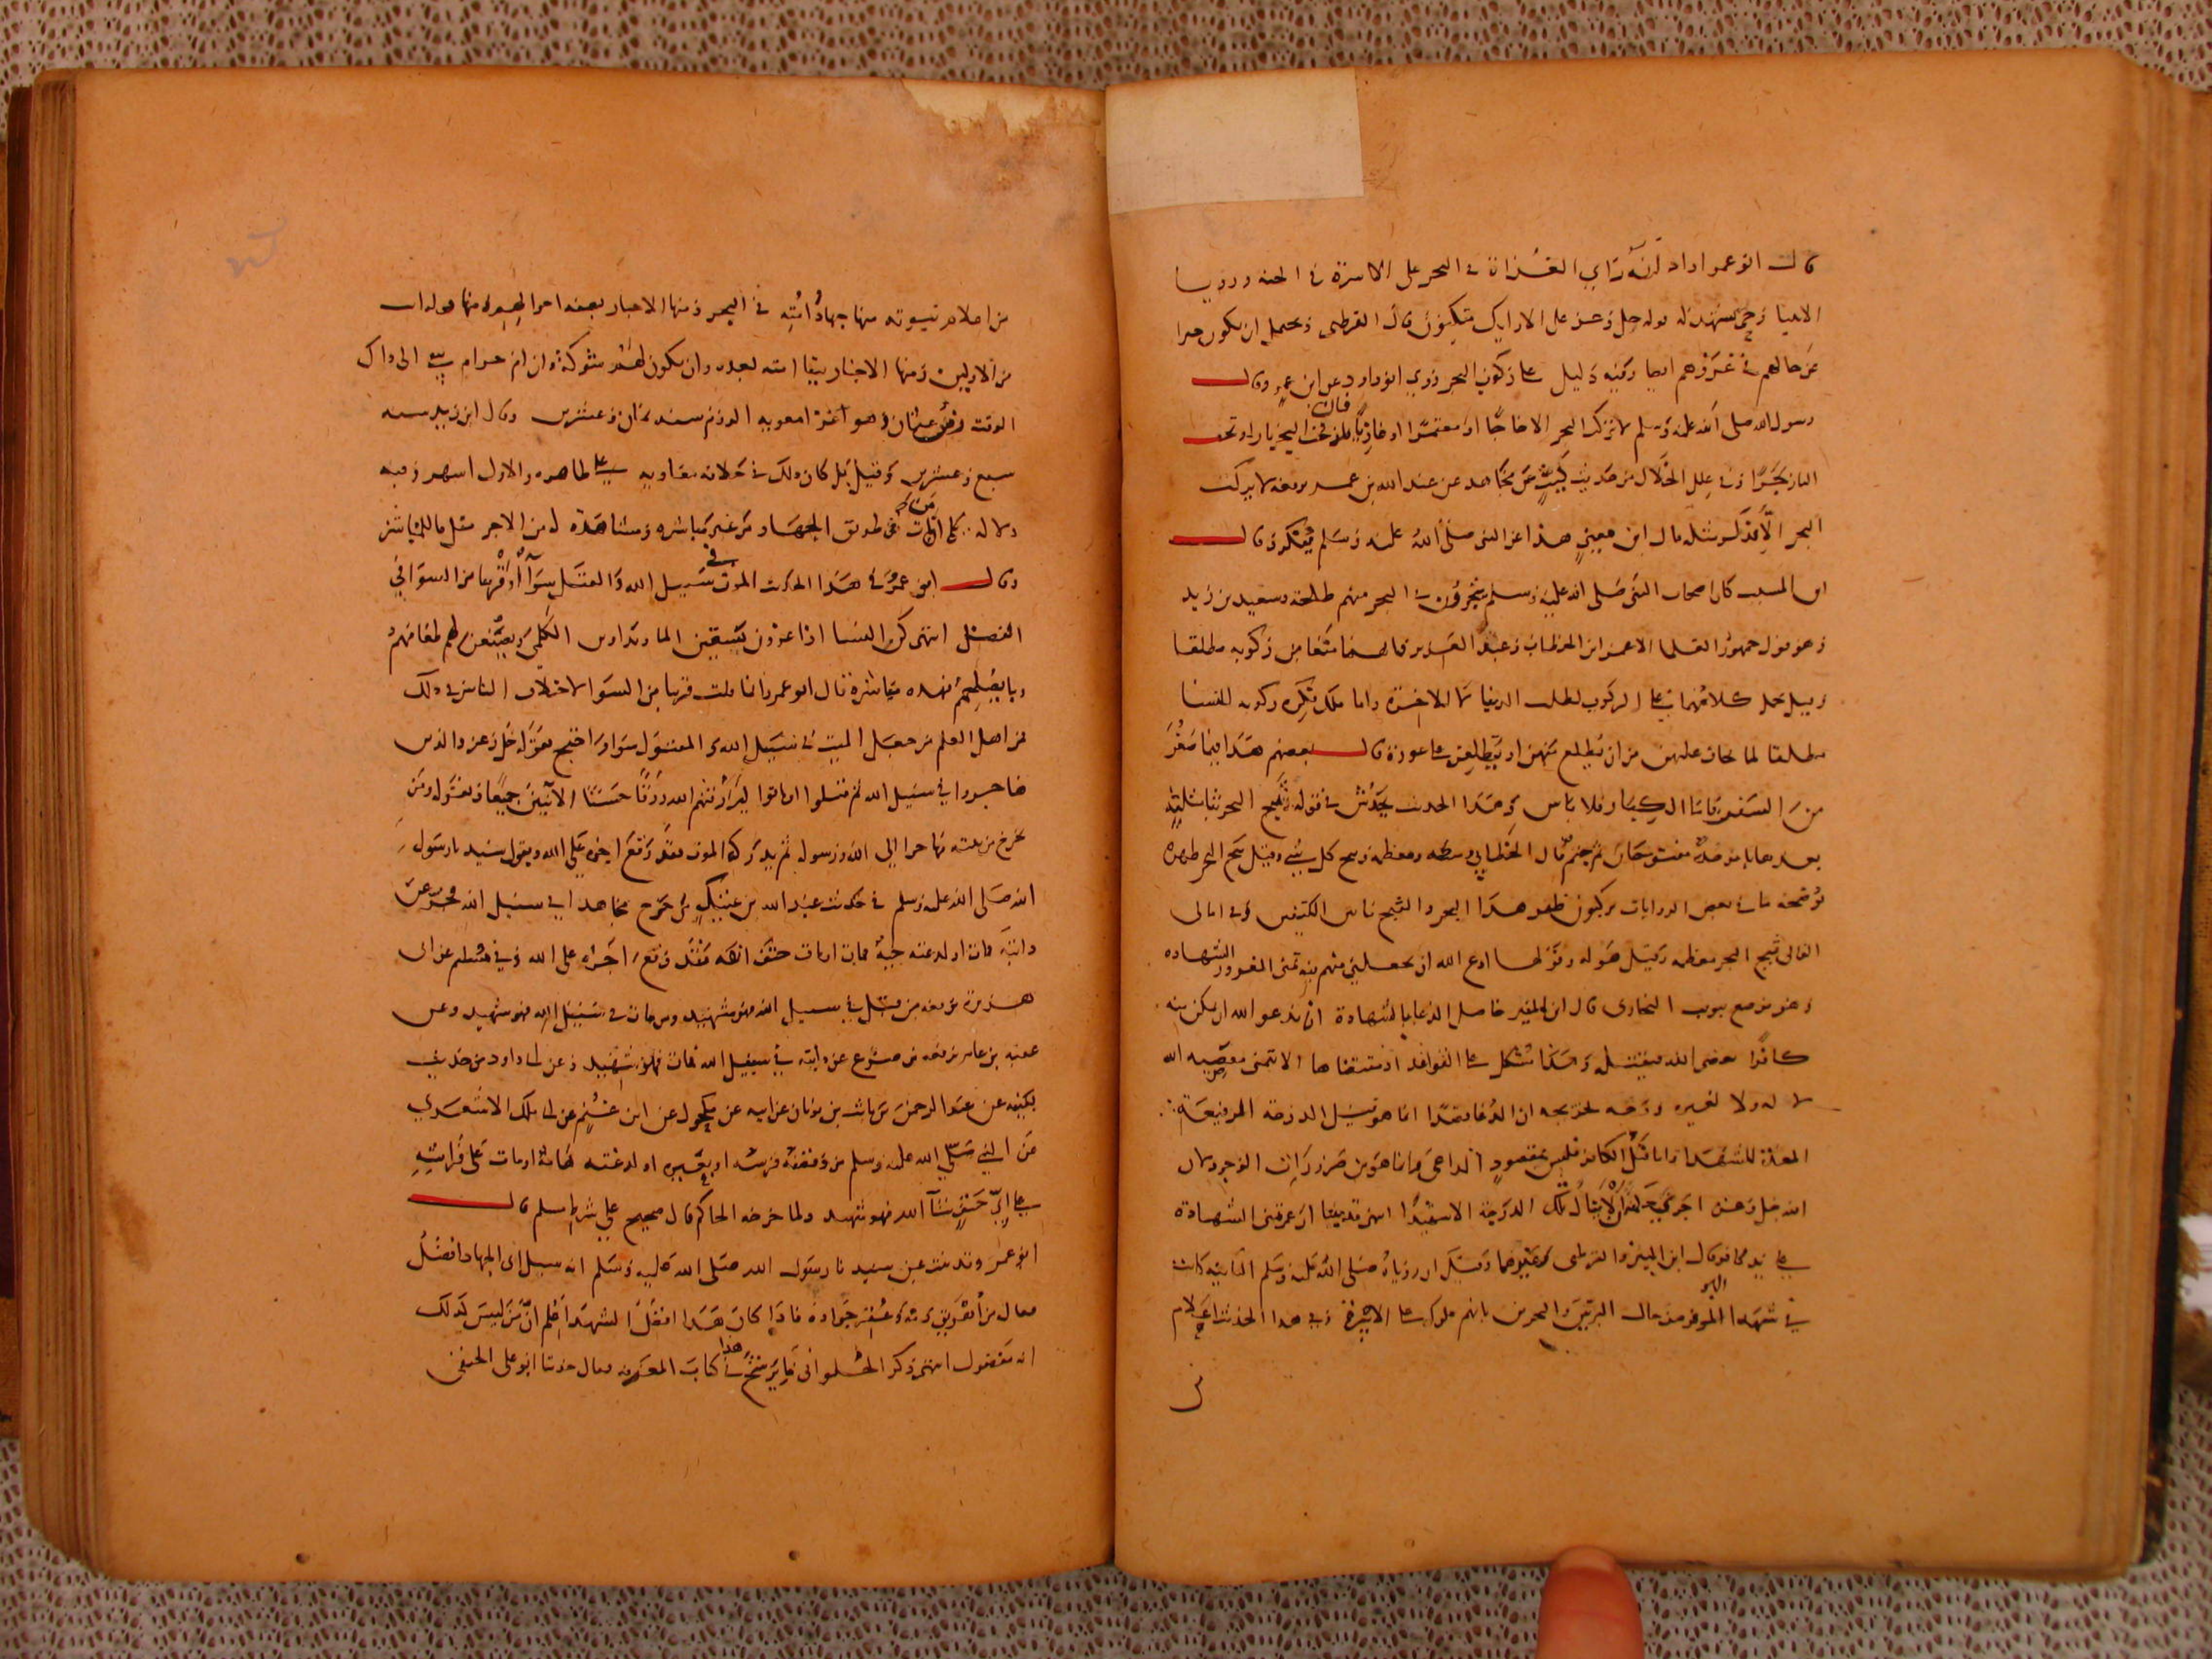 قال ابو عمر اراد انه راي الغزاة في البحر على الاسرة في الجنة ورويا
الانبيا وحي يشهد له قوله جل وعز على الارايك متكيون قال القرطبي ويحتمل ان يكون خبرا
عن حالهم في غزوهم ايضا وفيه دليل على ركوب البحر وروي ابو داود عن ابن عمر وقال
رسول الله صلى الله عليه وسلم لا تركب البحر الا حاجا او معتمرا او غازيا فان تحت البحر نارا وتحت
النار بحرا وفي علل الخلال من حديث ليث عن مجاهد عن عبد الله بن عمر يرفعه لا يركب
البحر الا فذكر مثله قال ابن معين هذا عن النبي صلى الله عليه وسلم منكر وقال
ابن المسيب كان اصحاب النبي صلى الله عليه وسلم يتجرون في البحر منهم طلحة وسعيد بن زيد
وهو قول جمهور العلما الا عمر ابن الخطاب وعبد العزيز فانهما منعا من ركوبه مطلقا
وقيل حمل كلامهما على الركوب لطلب الدنيا لا للاخرة واما ملك فكره ركوبه للنسا
مطلقا لما يخاف عليهن من ان يطلع منهن او يطلعن على عورة وقال بعضهم هذا فيما صغر
من السفن فاما الكبار فلا باس وهذا الحديث يخدش في قوله ثبج البحر ثا مثلثة
بعدها با موحدة مفتوحتان ثم جيم قال الخطابي وسطه ومعظمه وثبج كل شي وقيل ثبج البحر ظهره
توضحه ما في بعض الروايات يركبون ظهر هذا البحر والثبج ما بين الكتفين وفي امالي
القالي ثبج البحر معظمه وقيل هوله وقولها ادع الله ان يجعلني منهم فيه تمني الغزو والشهادة
وهو موضع تبويب البخاري قال ابن المنير حاصل الدعا بالشهادة ان يدعو الله ان يمكن منه
كافرا يعصي الله فيقتله وهذا مشكل على القواعد اذ مقتضاها الا يتمنى معصية الله
لا له ولا لغيره ووجه تخريجه ان الدعا قصدا انما هو نيل الدرجة الرفيعة
المعدة للشهدا واما قتل الكافر فليس بمقصود الداعي وانما هو من ضرورات الوجود لان
الله جل وعز اجرى حكمه ان لا ينال تلك الدرجة الا شهيد
في شهدا البحر من حال البرين والبحرين بانهم ملوك على الاسرة وفي هذا الحديث اعلام
من اعلام نبوته منها جهاد امته في البحر ومنها الاخبار بصفة احوالهم ومنها قوله انت
من الاولين ومنها الاخبار ببقا امته بعده وان يكون لهم شوكة وان ام حرام تبقى الى ذاك
الوقت زمن عثمان وهو اغزا معوية الروم سنة ثمان وعشرين وقال ابن زيد سنة
سبع وعشرين وقيل بل كان ذلك في خلافة معاوية على ظاهره والاول اشهر وفيه
دلالة على ان من مات في طريق الجهاد من غير مباشرة ومشاهدة له من الاجر مثل ما للمباشر
وقال ابو عمر في هذا الحديث الموت في سبيل الله والقتل سوآ او قريبا من السوا في
الفضل انتهى كن النسا اذا غزون يسقين الما ويداوين الكلمى ويصنعن لهم طعامهم
وما يصلحهم فهذه مباشرة قال ابو عمر وانما قلت قريبا من السوا لاختلاف الناس في ذلك
فمن اهل العلم من جعل الميت في سبيل الله والمقتول سوا واحتج بقوله جل وعز والذين
هاجروا في سبيل الله ثم قتلوا او ماتوا ليرزقنهم الله رزقا حسنا الايتين جميعا وبقوله ومن
يخرج من بيته مهاجرا الى الله ورسوله ثم يدركه الموت فقد وقع اجره على الله وبقول سيد نا رسول
الله صلى الله عليه وسلم في حديث عبد الله بن عتيك من خرج مجاهدا في سبيل الله فخر عن
دابته فمات او لدغته حية فمات او مات حتف انفه فقد وقع اجره على الله وفي مسلم عن ابي
هريرة يرفعه من قتل في سبيل الله فهو شهيد ومن مات في سبيل الله فهو شهيد وعن
عقبة بن عامر يرفعه من صرع عن دابته في سبيل الله فمات فهو شهيد وعن ابي داود من حديث
بقية عن عبد الرحمن بن ثابت بن ثوبان عن ابيه عن مكحول عن ابن غنم عن ابي ملك الاشعري
عن النبي صلى الله عليه وسلم من وقصته فرسه او بعيره او لدغته هامة او مات على فراشه
على اي حتف شآ الله فهو شهيد ولما خرجه الحاكم قال صحيح على شرط مسلم قال
ابو عمر وقد ثبت عن سيد نا رسول الله صلى الله عليه وسلم انه سيل اي الجهاد افضل
فقال من اهريق دمه وعقر جواده فاذا كان هذا افضل الشهدا علم ان من ليس كذلك
انه مفضول انتهى ذكر الحلواني في كتاب المعرفة فقال حدثنا ابو علي الحنفي